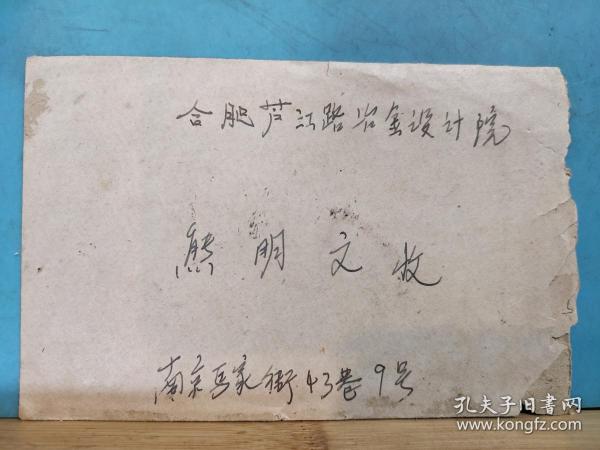 合肥芦江路冶金设计院
熊明文收
南京马家街43巷9号
孔夫子旧书网
www.kongfz.com